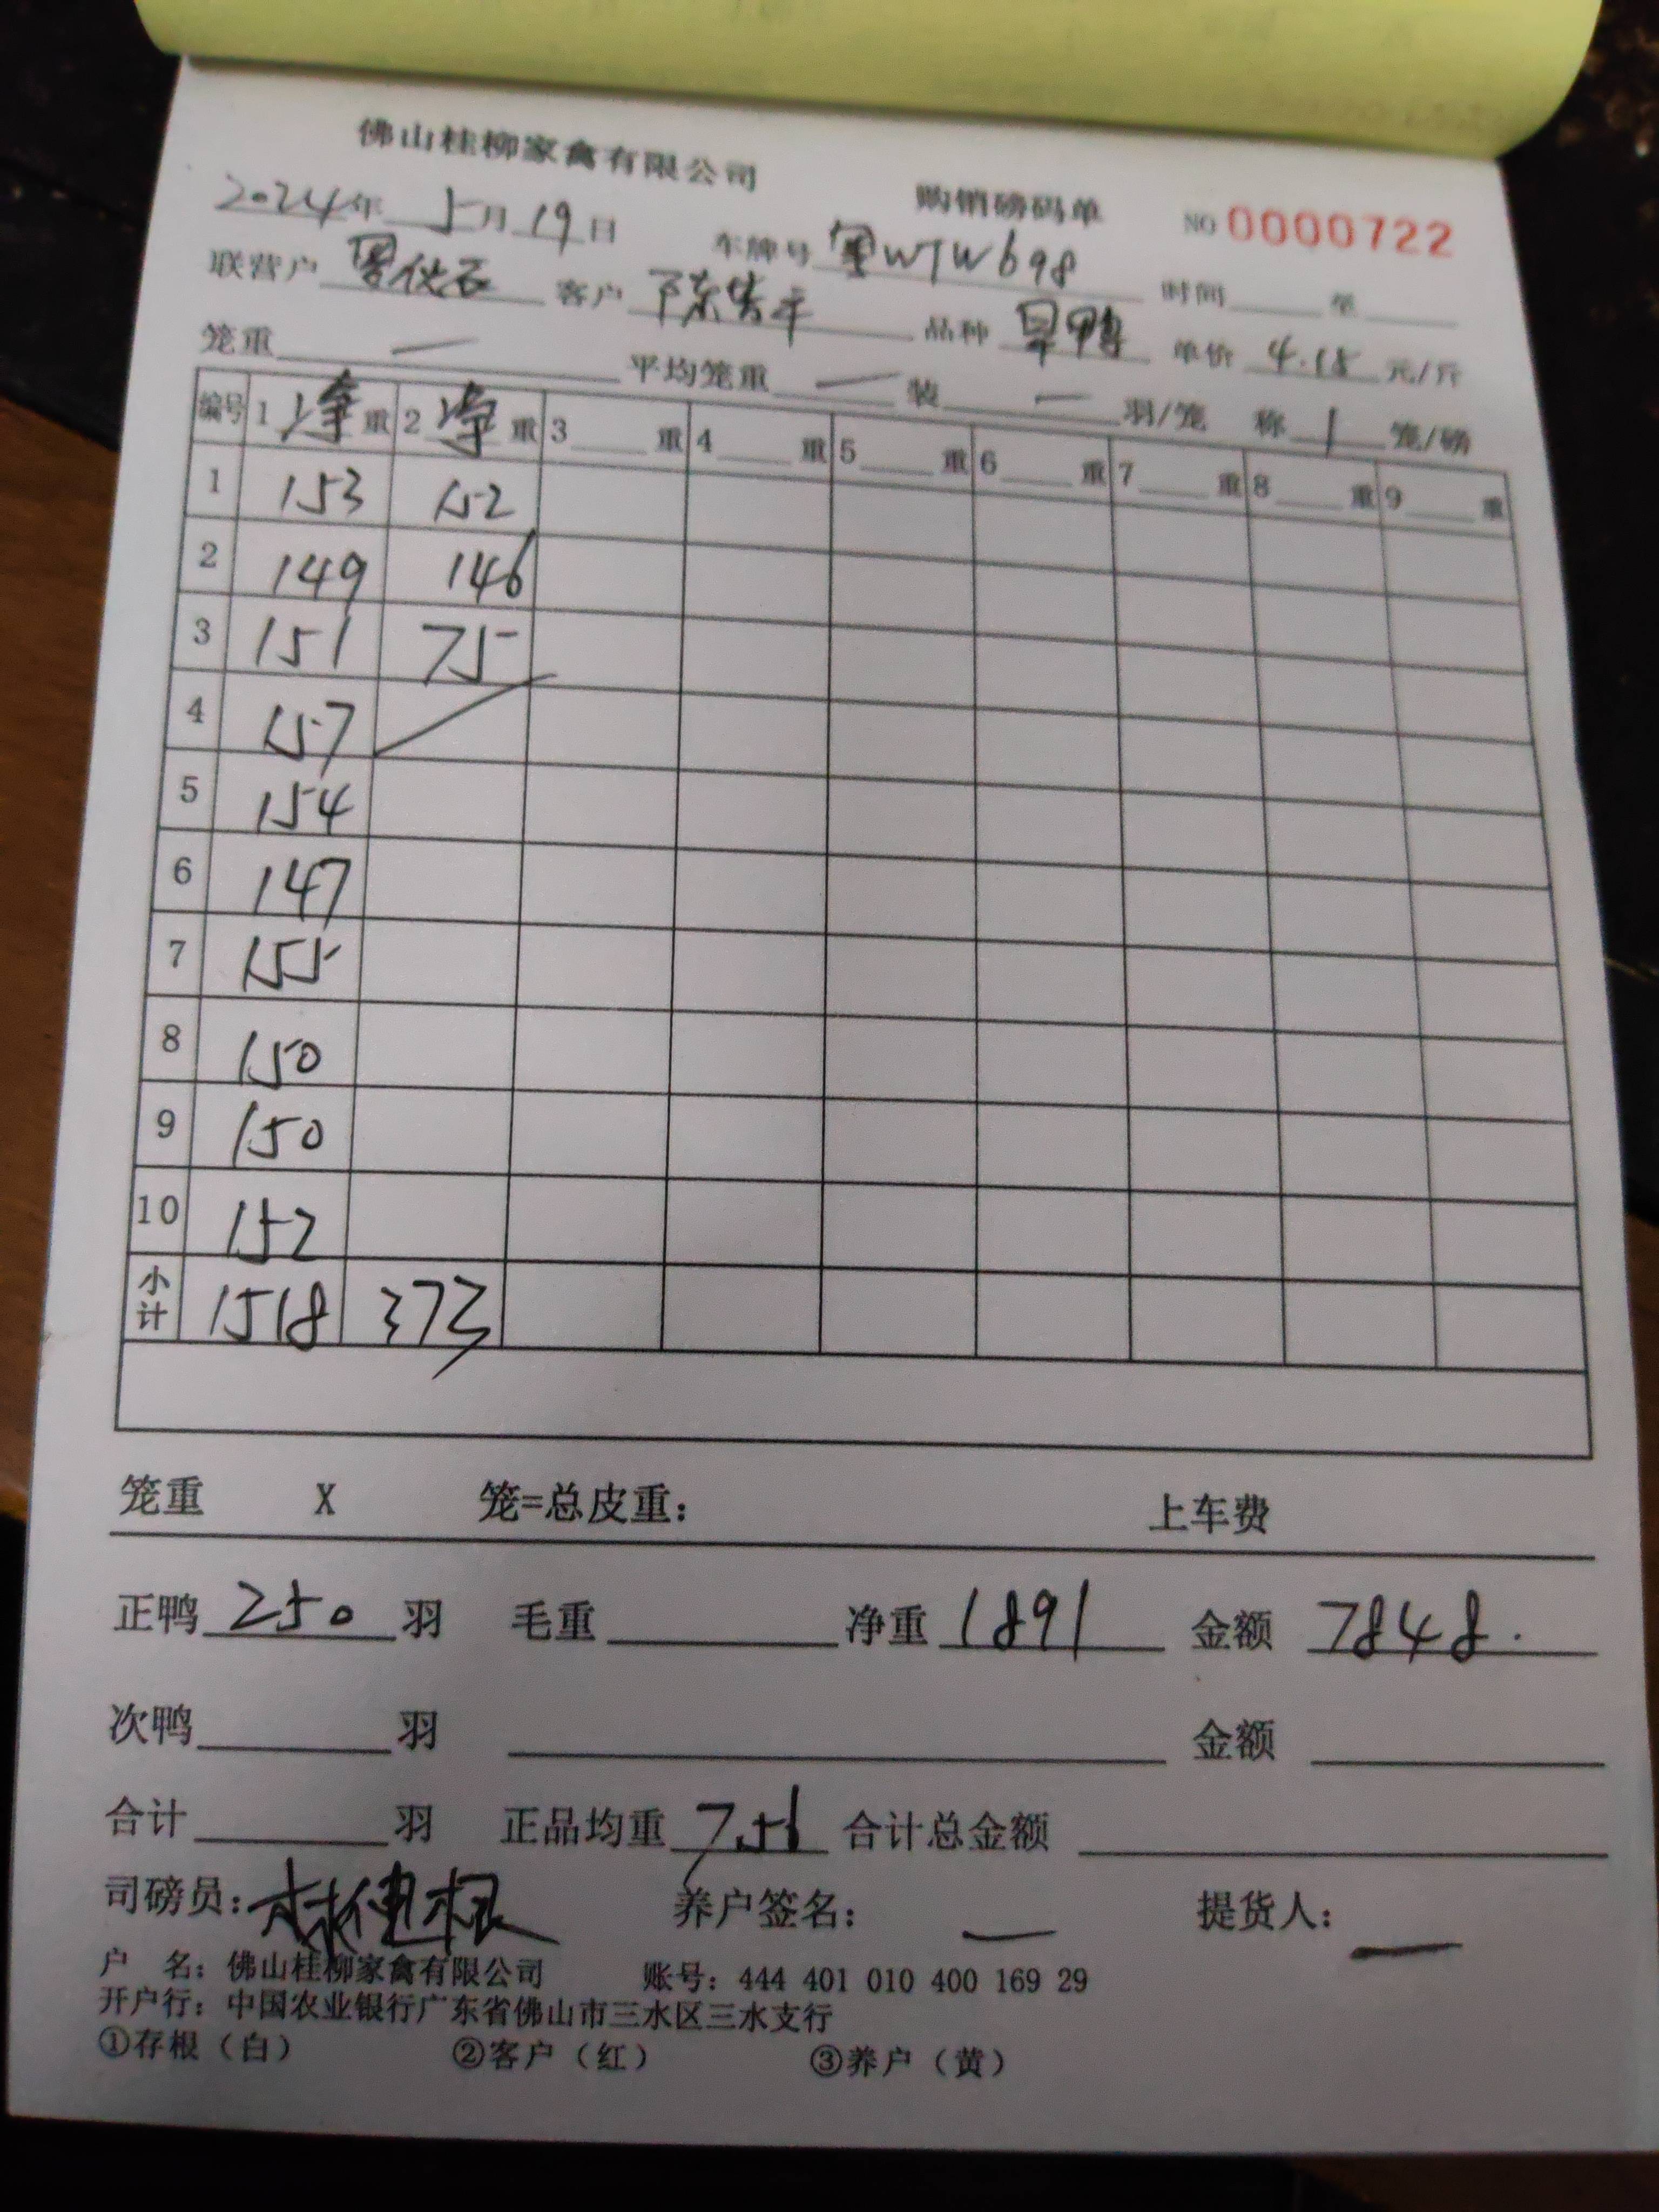 佛山桂柳家禽有限公司
购销磅码单 NO 0000722
2024年 5月19日 车牌号 WTW698 时间 至
联营户 周 客户 陈 品种 旱鸭 单价 4.15 元/斤
笼重 — 平均笼重 — 装 — 羽/笼 称 1 笼/磅
编号 1 净 重 2 净 重 3 重 4 重 5 重 6 重 7 重 8 重 9 重
1 153 152
2 149 146
3 151 75
4 157
5 154
6 147
7 155
8 150
9 150
10 152
小计 1518 373
笼重 X 笼=总皮重： 上车费
正鸭 250 羽 毛重 净重 1891 金额 7848.
次鸭 羽 金额
合计 羽 正品均重 7.56 合计总金额
司磅员： 养户签名： — 提货人： —
户 名：佛山桂柳家禽有限公司 账号：444 401 010 400 169 29
开户行：中国农业银行广东省佛山市三水区三水支行
①存根（白） ②客户（红） ③养户（黄）